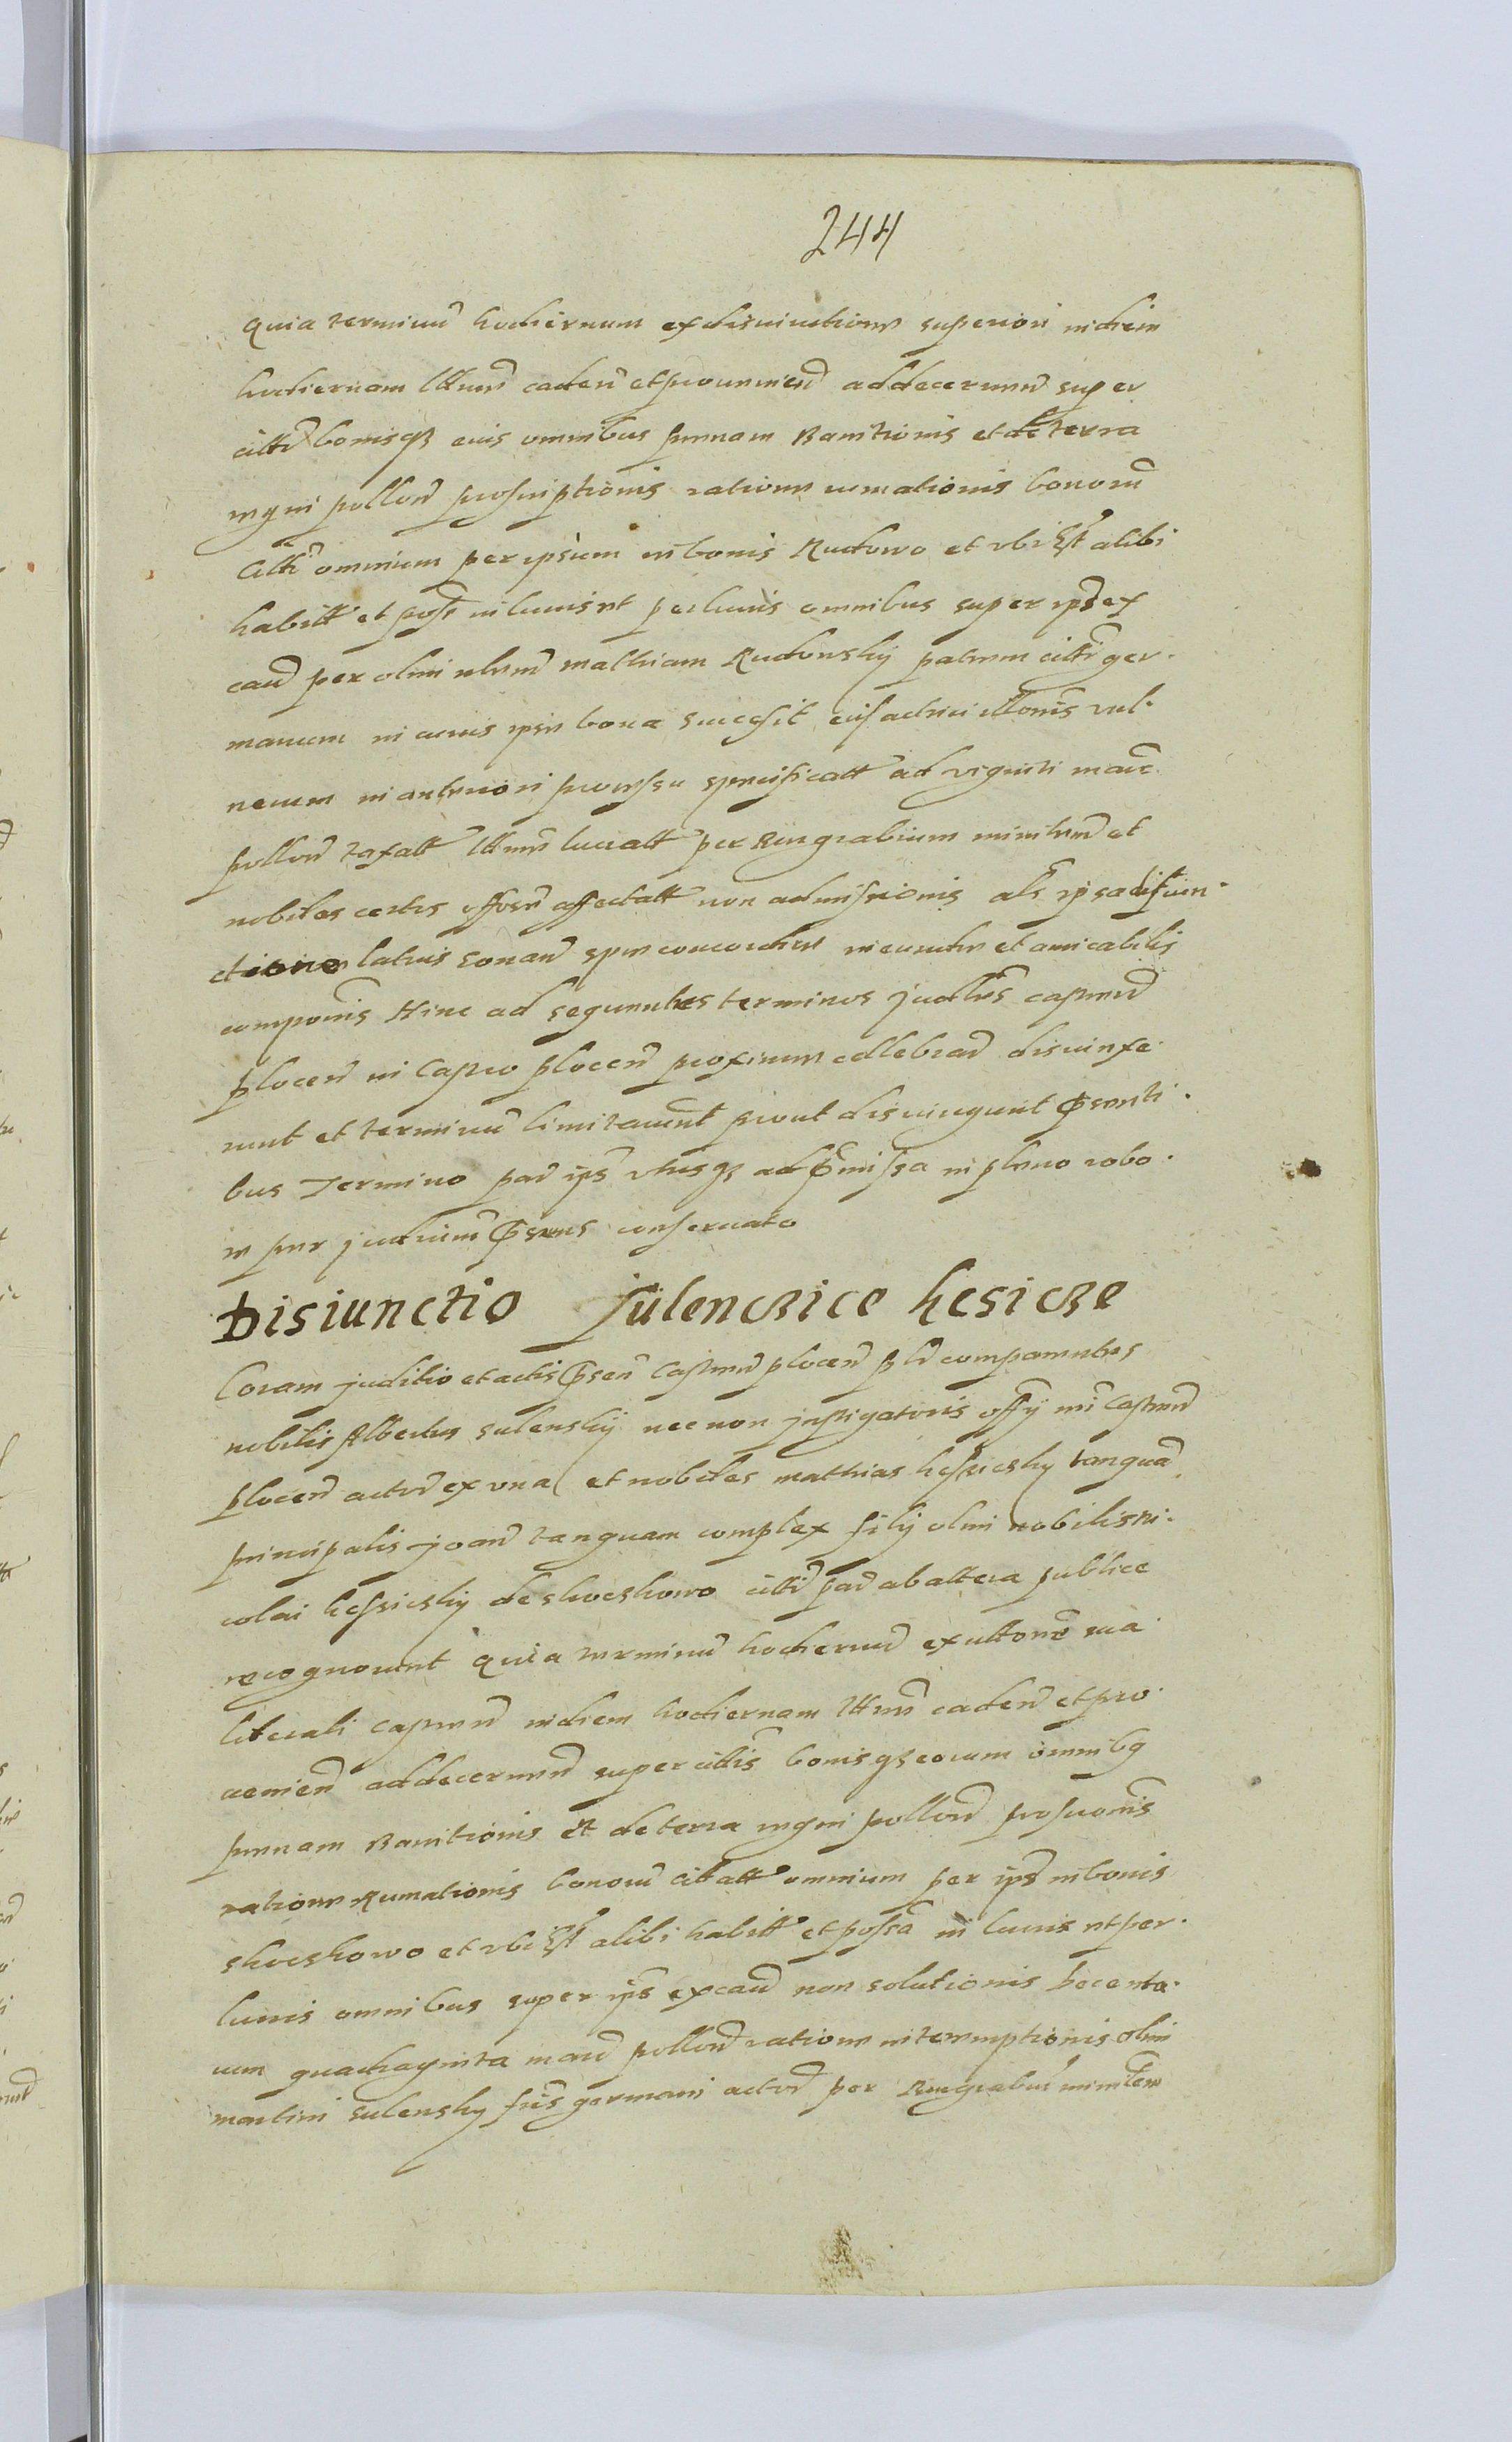 244
quia terminũ hodiernum ex disiunctione superiori in diem
hodiernam lttme caden̄ et prouenien̄ ad decernen̄ super
citto bonisqȝ eius omnibus pœnam Bannitionis et de terra
regni pollon̄ proscriptionis ratione rumationis bonorũ
Citti omnium per ipsum in bonis Rudowo et vbi Est alibi
habitt et poss in lucris et perlucris omnibus super ips ex
cau per olim nlem mathiam Rudowsky patrem citti ger.
manum in cuius ipse bona successit eiſ ad vul.
nerum in anteriori processu specificatt ad viginti marc
pollon̄ taxatt lttme lucratt per Ringrabium ministm̄ et
nobiles certos offos̄ affectatt non admissionis als ipsa disiun.
ctione latius sonan̄ spe concordiæ ineundæ et amicabilis
compoñis Hinc ad sequentes terminos judles castren̄
plocen̄ in Castro plocen̄ proxime cellebran̄ disiunxe.
runt et terminũ limitauerũt prout disiungunt pr̄senti.
bus Termino par ips vtrisqȝ ad pr̄missa in pleno robo.
re per judicium pr̄sens conseruato
Disiunctio Sulenczice kesicze
Coram juditio et actis pr̄sen̄ Castren̄ plocen̄ pler comparentes
nobilis Albertus sulensky nec non jnstigatoris offy nri Castren̄
plocen̄ actor̄ ex vna et nobiles mathias kessicsky tanquã
principalis joan̄ tanquam complex filÿ olim nobilis ni.
colai kessicsky de skoeskowo citti par ab altera publice
recognouerũt quia terminũ hodiernũ ex cittone sua
literali castren̄ in diem hodiernam lttme caden̄ et pro.
uenien̄ ad decernen̄ super cittis bonisqȝ eorum omnibȝ
pœnam Bannitionis et de terra regni pollon̄ proscronis
ratione Rumationis bonorũ citatt omnium per ips in bonis
skoeskowo et vbi Est alibi habitt et possa in lucris et per.
lucris omnibus super ips ex cau non solutionis trecenta.
rum quadraginta marc pollon̄ ratione interemptionis olim
martini sulensky fris germani actor̄ per Ringrabiũ ministrem